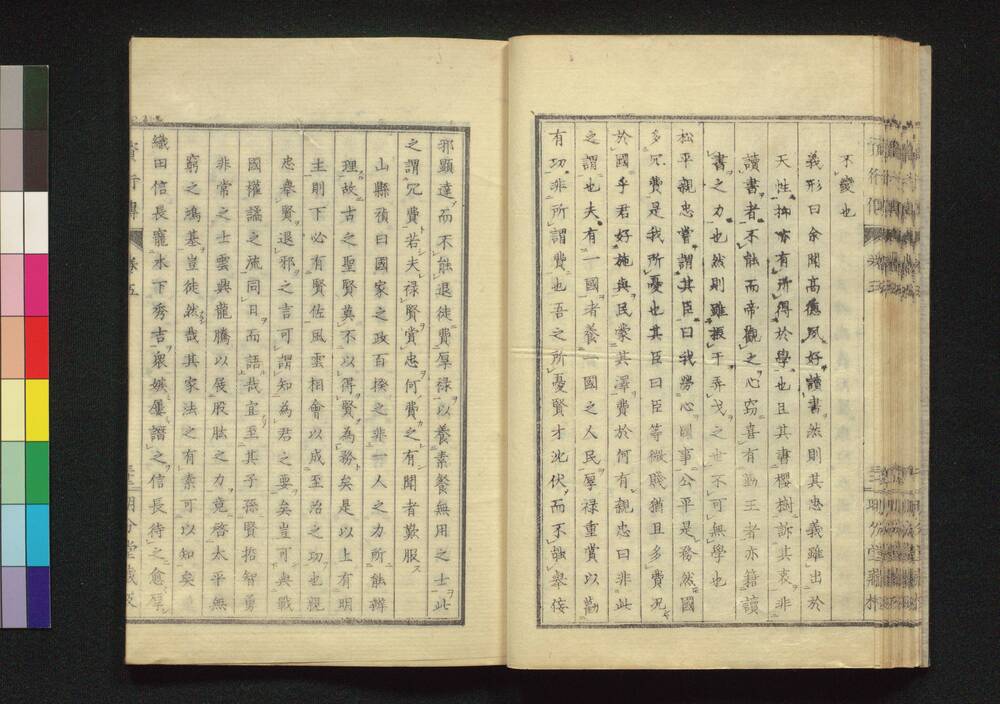 不變也
義形曰余聞高德夙好讀書然則其忠義雖出於
天性抑亦有所得於學也且其書櫻樹訴其衷非
讀書者不能而帝觀之心竊喜有勤王者亦籍讀
書之力也然則雖振干弄戈之世不可無學也
松平親忠嘗謂其臣曰我勞心國事公平是務然國
多冗費是我所憂也其臣曰臣等微賤猶且多費况
於國乎君好施與民蒙其澤費於何有親忠曰非此
之謂也夫有一國者養一國之人民厚禄重賞以勸
有功非所謂費也吾之所憂賢才沈伏而不能舉佞
邪顯達而不能退徒費厚禄以養素餐無用之士此
之謂冗費若夫禄賢賞忠何費之有聞者歎服
山縣禎曰國家之政百揆之非一人之力所能辨
理故古之聖賢莫不以得賢為務矣是以上有明
主則下必有賢佐風雲相會以成至治之功也親
忠舉賢退邪之言可謂知為君之要矣豈可與戰
國權譎之流同日而語哉宜至其子孫賢哲智勇
非常之士雲興龍騰以展股肱之力竟啓太平無
窮之鴻基豈徒然哉其家法之有素可以知矣
織田信長寵木下秀吉衆嫉屢譖之信長待之愈厚